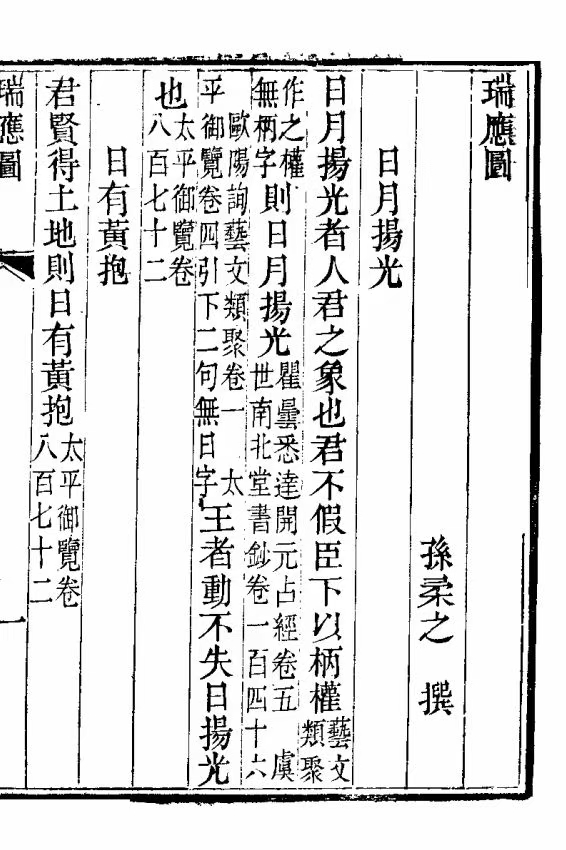 瑞應圖
孫柔之 撰
日月揚光
日月揚光者人君之象也君不假臣下以柄權藝文類聚
作之權無柄字則日月揚光瞿曇悉達開元占經卷五 虞世南北堂書鈔卷一百四十六
歐陽詢藝文類聚卷一 太平御覽卷四引下二句無日字王者動不失日揚光
也太平御覽卷八百七十二
日有黃抱
君賢得土地則日有黃抱太平御覽卷八百七十二
瑞應圖 一